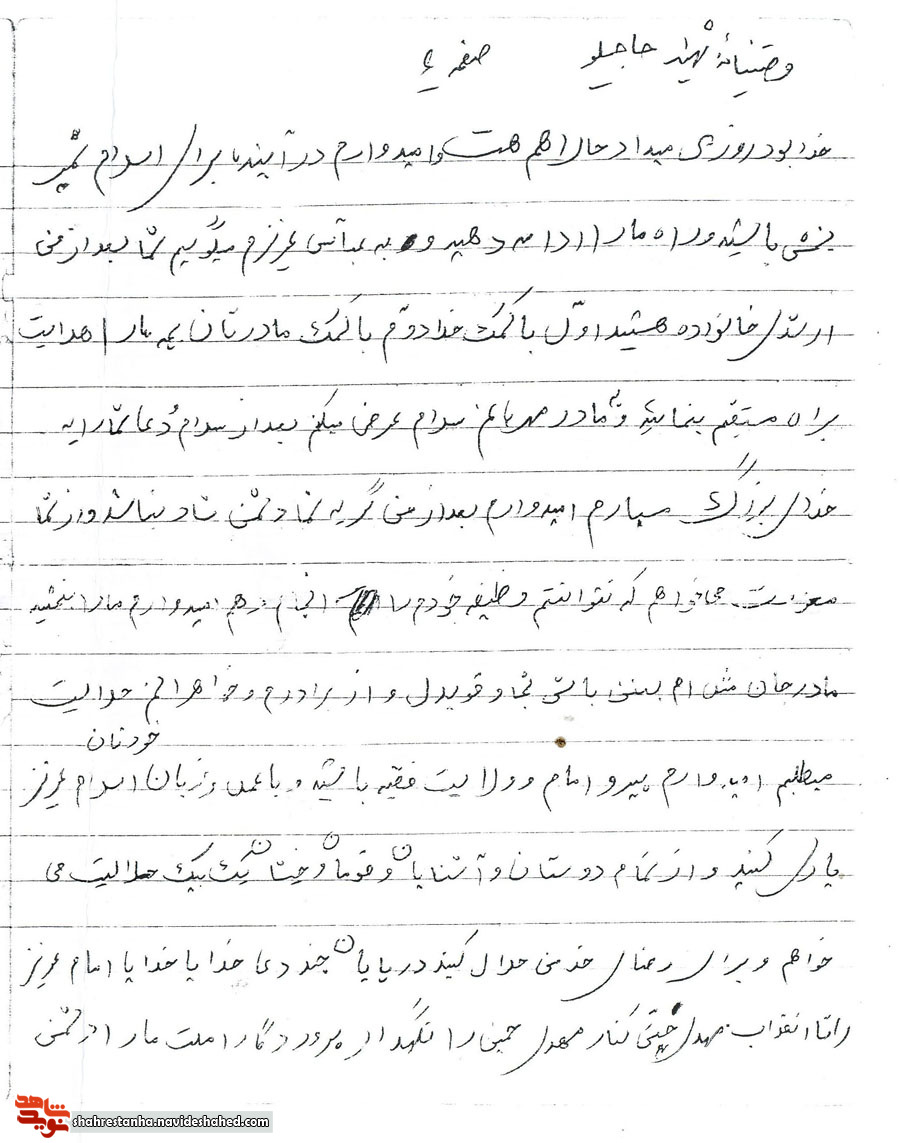 وصیتنامهٔ شهید حاجیلو صفحه ۶
خدا بود روزی میداد حالا هم هست و امیدوارم در آینده برای اسلام ثمر
بخش باشید و راه ما را ادامه دهید و به عباس عزیزم میگویم شما بعد از من
ارشد خانواده هستید اوّل با کمک خدا دوّم با کمک مادرتان بچه ها را هدایت
براه مستقیم بنمائید و مادر مهربانم سلام عرض میکنم بعد از سلام دُعا شما را به
خدای بزرگ میسپارم امیدوارم بعد از من گریه نکنید دشمن شاد نباشد و از شما
معذرت میخواهم که نتوانستم وظیفه خودم را انجام دهم امیدوارم ما را ببخشید
مادر جان مثل ام باشی و قویدل و از برادرم و خواهرانم حلالیت
میطلبم امیدوارم پیرو امام و ولایت فقیه باشید و با عمل و زبان خودتان اسلام عزیز
یاری کنید و از تمام دوستان و آشنایان و قومان و خیشان یک یک حلالیت می
خواهم و برای رضای خدا منی حلال کنید در پایان چند دعا خدایا خدایا امام عزیز
را تا انقلاب مهدی حتّی کنار مهدی خمینی را نگهدار پروردگارا ملت ما را از دشمن
نوید شاهد
shahrestanha.navideshahed.com